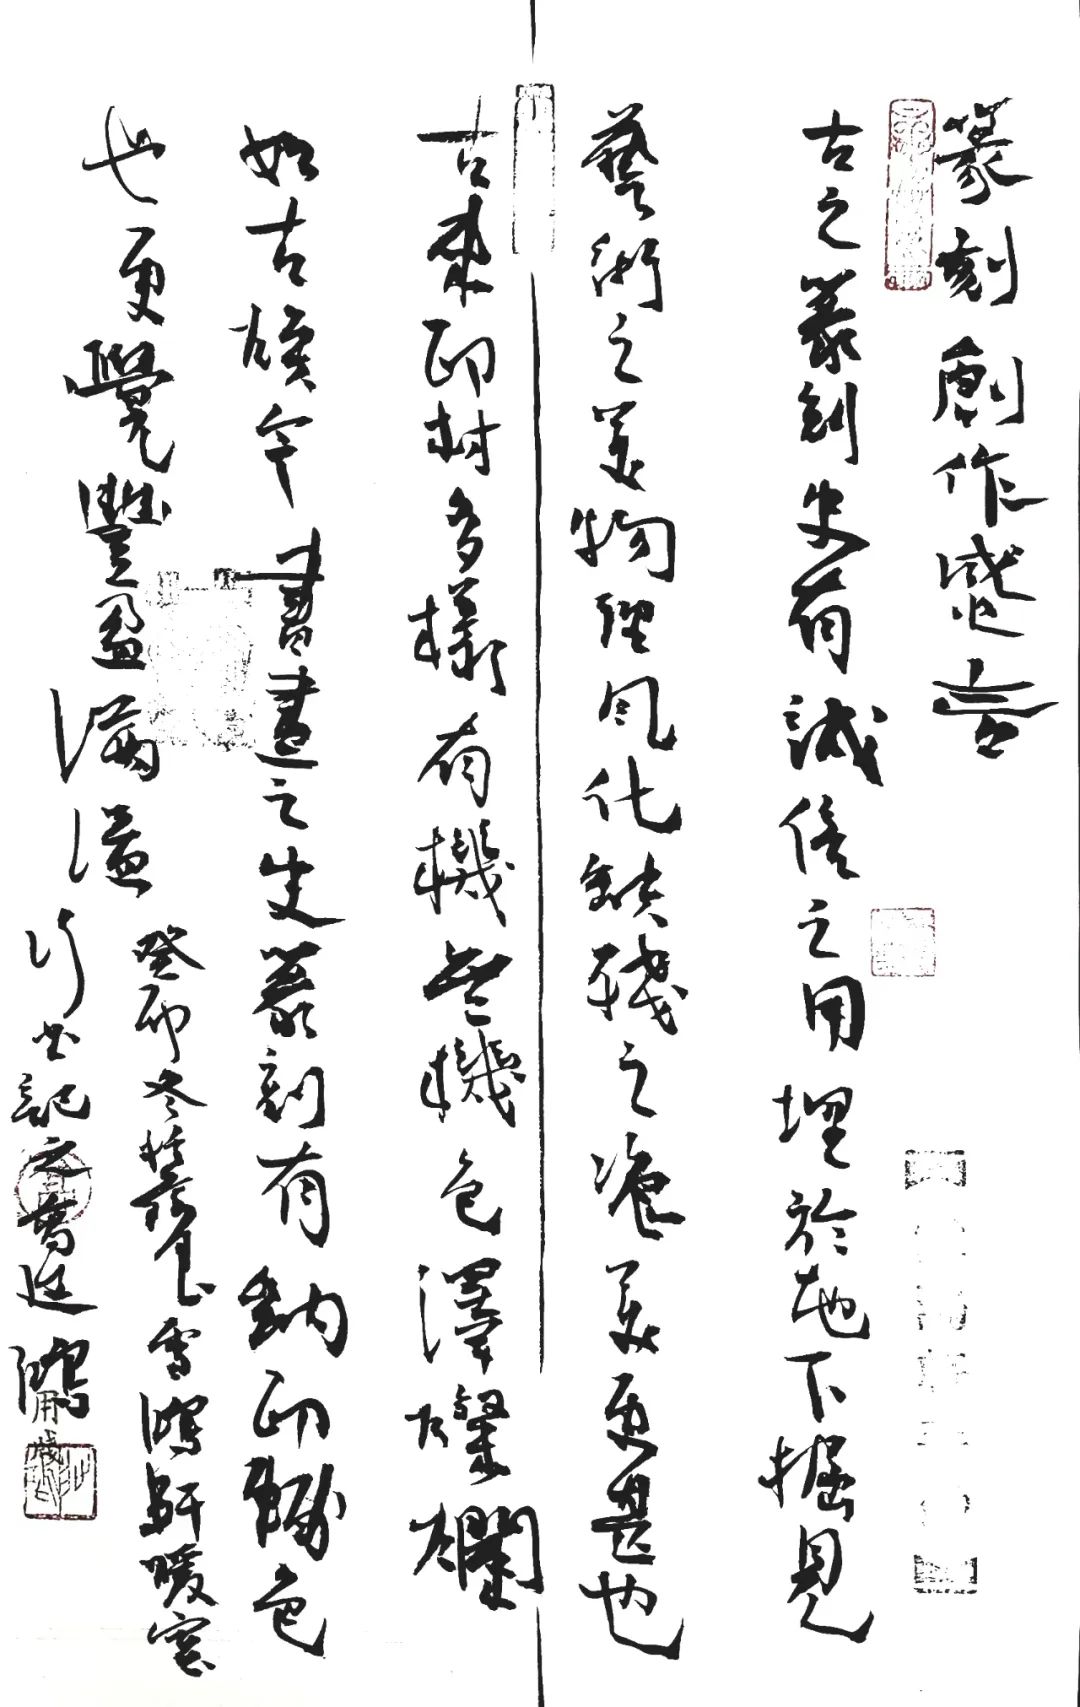 篆刻創作感言
古之篆刻史有誠信之用埋於地下掘見
藝術之美物理風化缺殘之滄美更甚也
古來印材多樣有機無機色澤燦爛
如古牘牟書畫之史篆刻有鈉印飾色
也更覺豐盈滿溢
癸卯冬 雪鴻軒暖窗
行書記之萬廷鴻